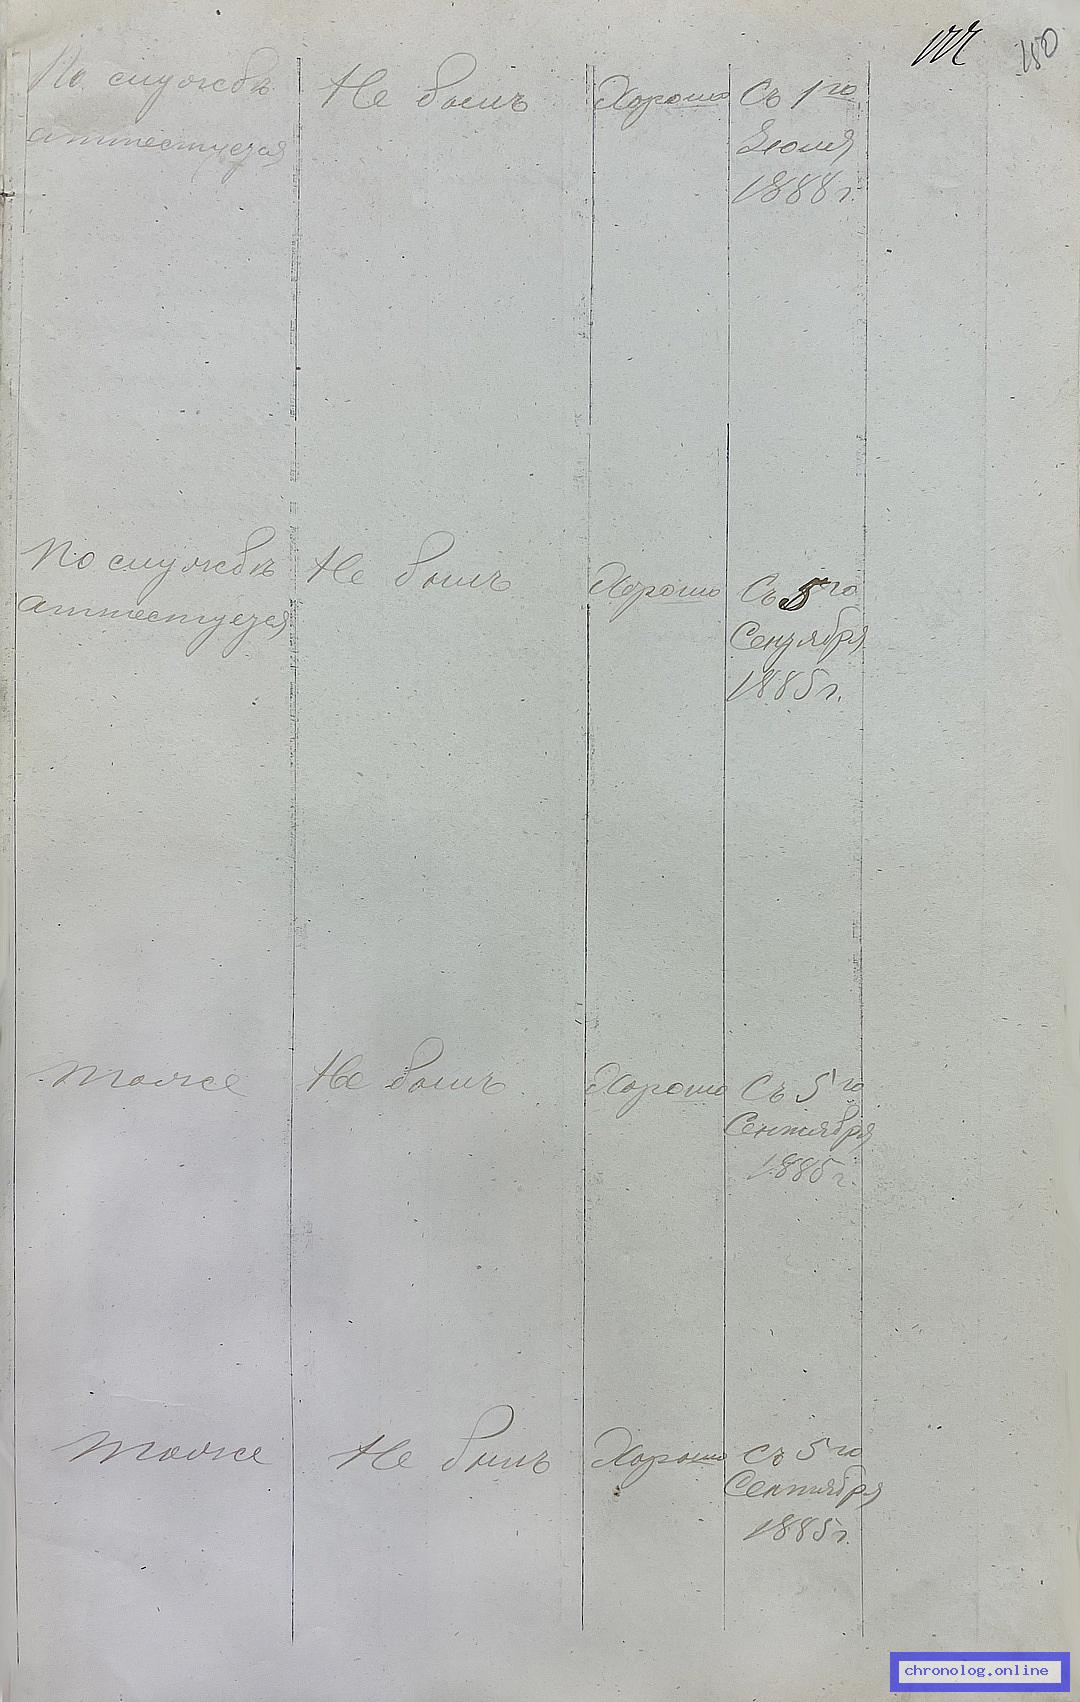 180
По службѣ
аттестуется
Не былъ
Хорошо
Съ 1го
Іюля
1888 г.
По службѣ
аттестуется
Не былъ
Хорошо
Съ 5го
Сентября
1885 г.
Тоже
Не былъ
Хорошо
Съ 5го
Сентября
1885 г.
Тоже
Не былъ
Хорошо
Съ 5го
Сентября
1885 г.
chronolog.online